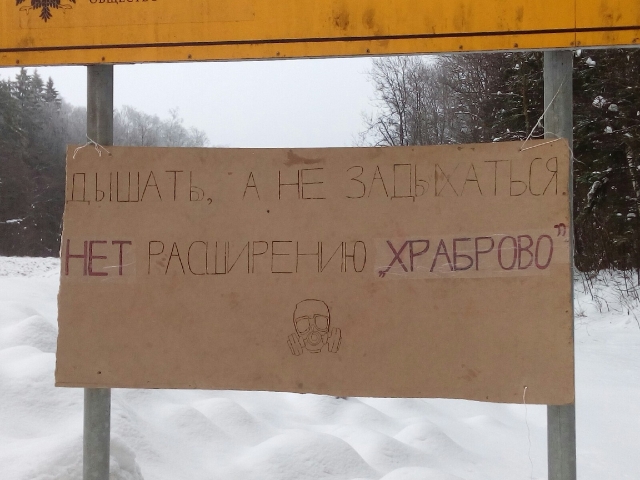 ОБЩЕСТВО
ДЫШАТЬ, А НЕ ЗАДЫХАТЬСЯ.
НЕТ РАСШИРЕНИЮ „ХРАБРОВО”